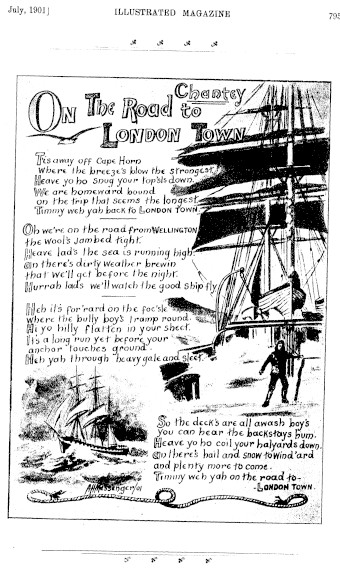 July, 1901]
ILLUSTRATED MAGAZINE
795
Chantey
On The Road to
London Town
Tis away off Cape Horn
Where the breeze's blow the strongest,
Heave yo ho snug your top'sls down.
We are homeward bound
on the trip that seems the longest
Timmy weh yah back to London Town.
Oh we're on the road from WELLINGTON
the wool's jambed tight.
Heave lads the sea is running high.
an there's dirty weather brewin
that we'll get before the night.
Hurrah lads we'll watch the good ship fly
Heh it's for'ard on the foc'sle
where the bully boy's tramp round.
Hi yo hilly flatten in your sheet.
It's a long run yet before your
anchor touches ground.
Heh yah through heavy gale and sleet.
So the deck's are all awash boy's
you can hear the backstays hum.
Heave yo ho coil your halyards down.
an there's hail and snow to wind'ard
and plenty more to come.
Timmy weh yah on the road to-
-LONDON TOWN.